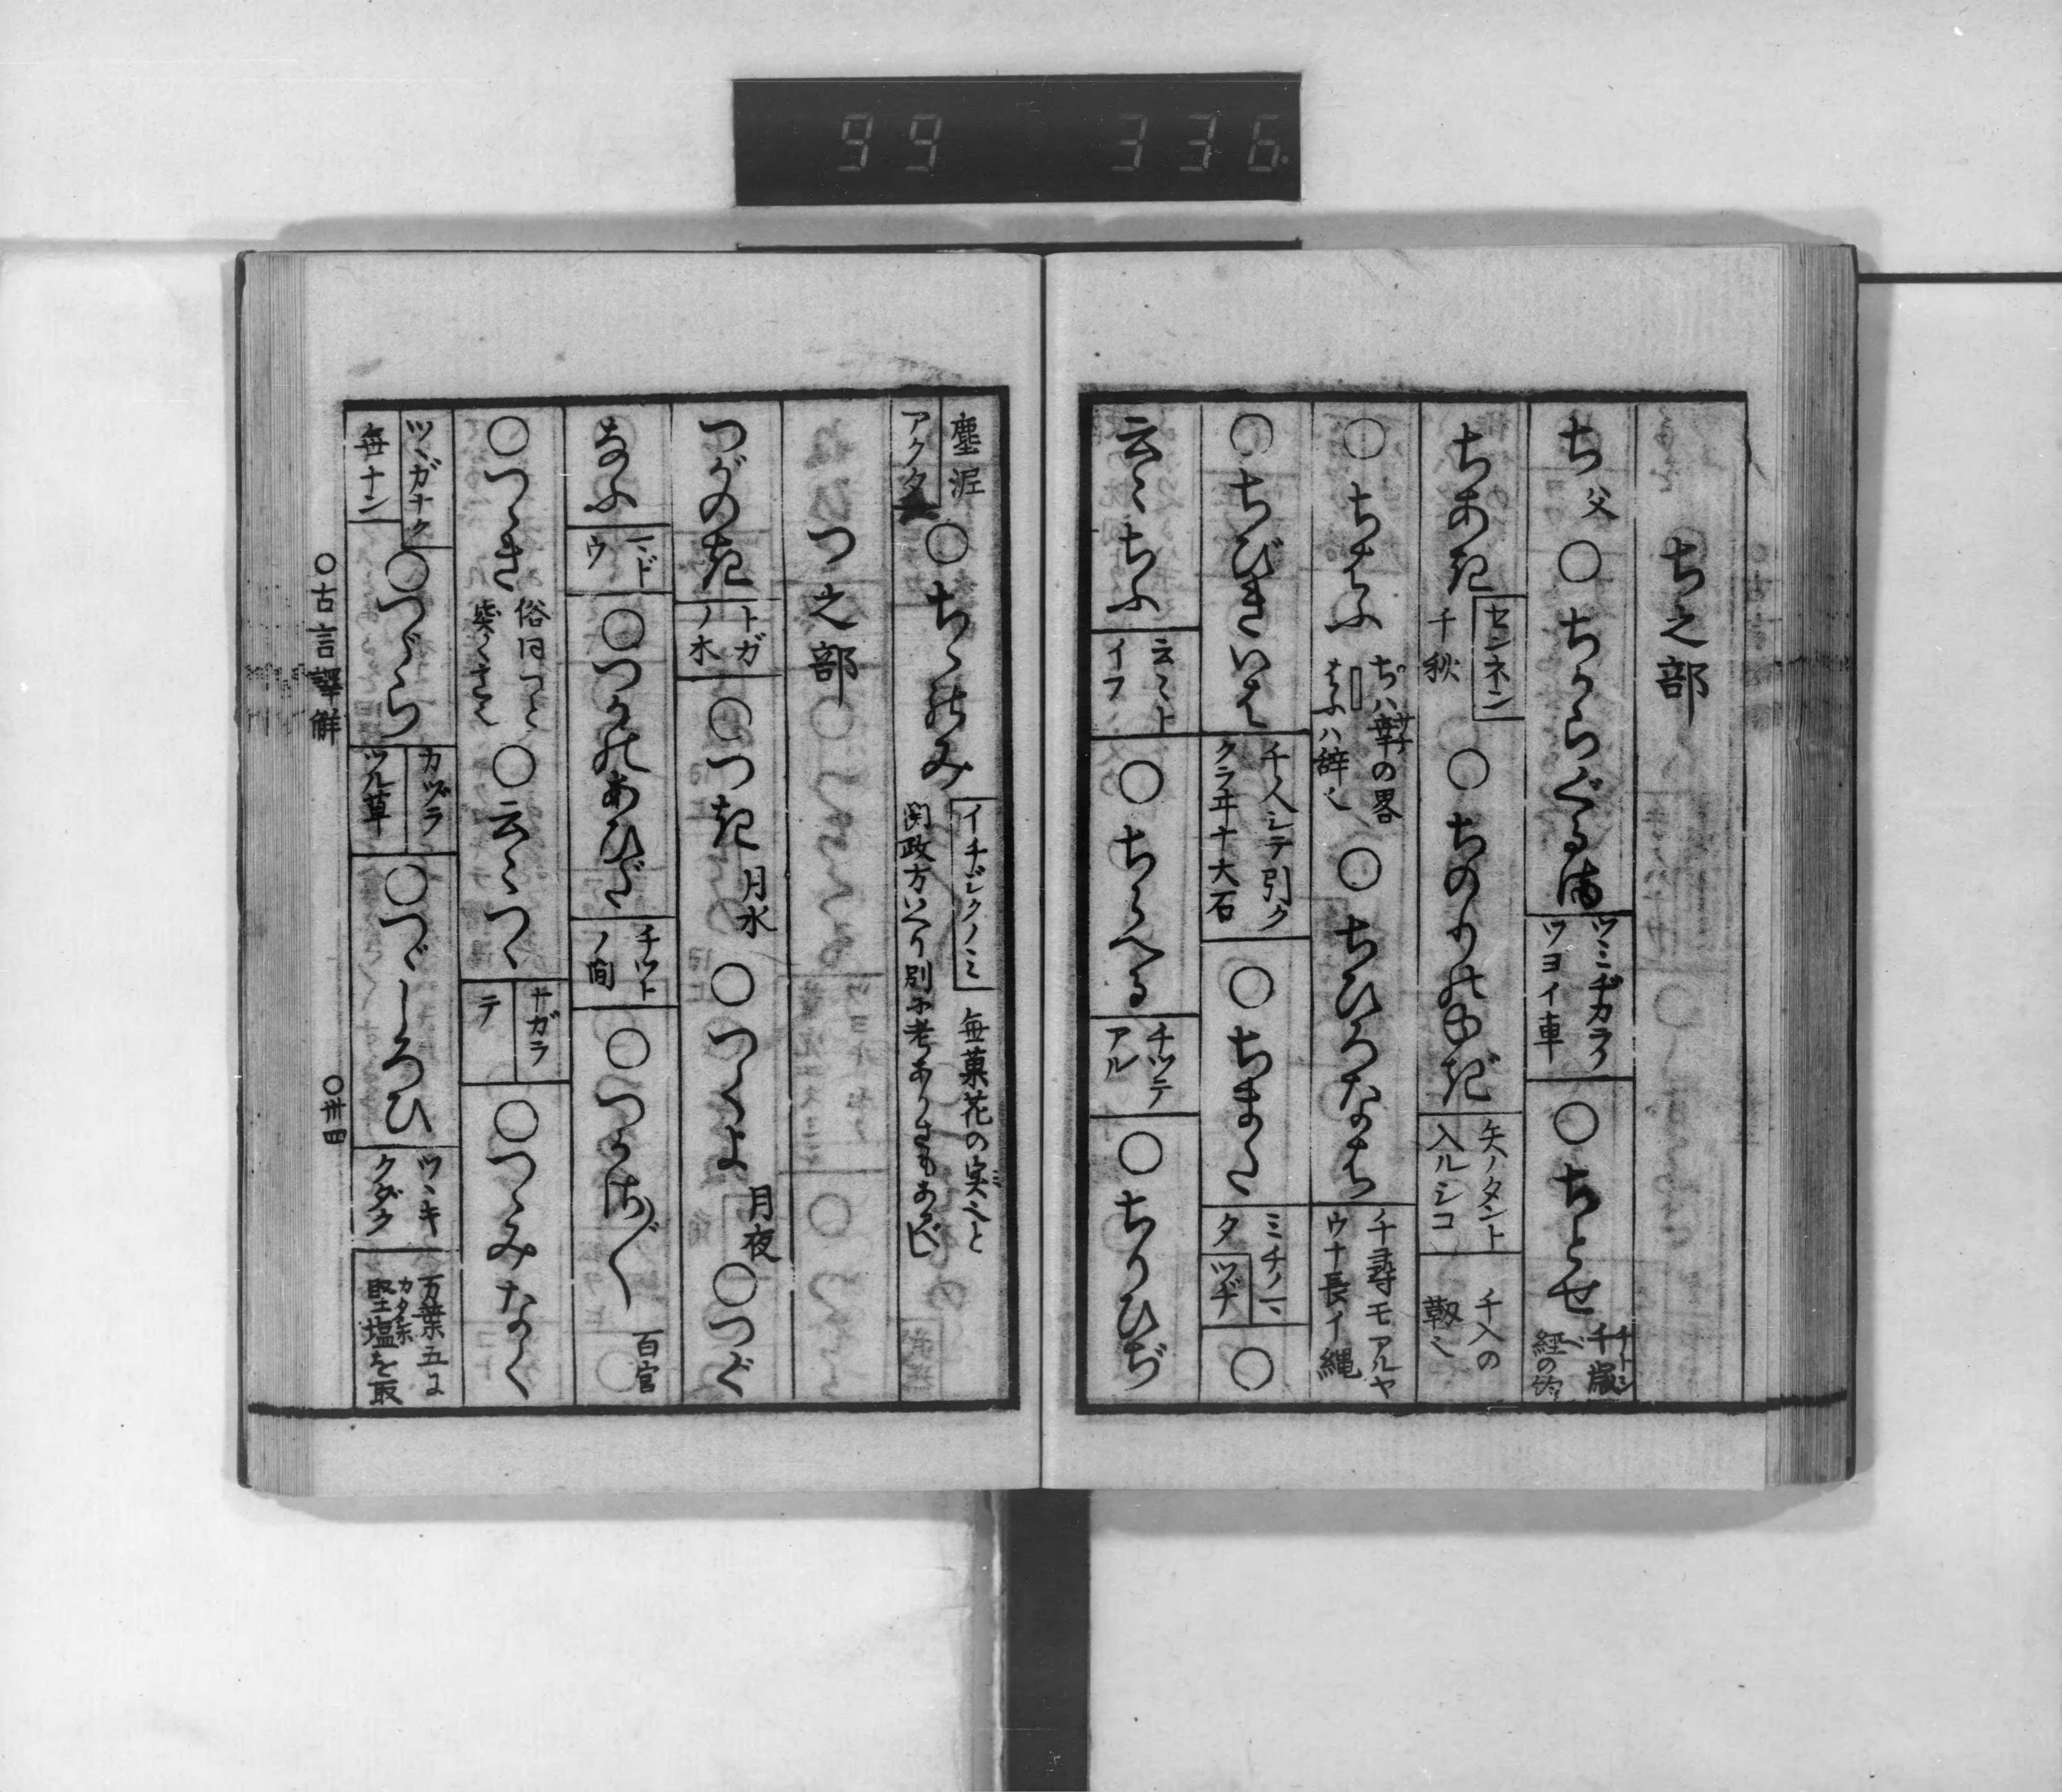 99 336
ち之部
ち 父 ○ちからぐるま ツミヂカラノツヨイ車 ○ちとせ 千歳チトシ 経の
ちあき センネン 千秋 ○ちのりのゆぎ 矢ノタント入ルシコ 千入の靫也
○ちはふ ぢハ幸サチの畧 はふハ辞也 ○ちひろなはち 千尋モアルヤウナ長イ縄
○ちびきいは 千人シテ引ククラヰナ大石 ○ちまた ミチノマタ ツヂ ○
云〻ちふ 云〻トイフ ○ちらへる チツテアル ○ちりひぢ
塵泥 アクタ ○ちゝのみ イチヂクノミ 無菓花の実ミ也と関政方いへり別に考ありさもあるべし
つ之部
つがのき トガノ木 ○つき 月水 ○つくよ 月夜 ○つぐ
なふ マドウ ○つかのあひだ チツトノ間 ○つかさ〲 百官
○つゝき 俗曰つゝ ○云〻つゝ ナガラテ ○つゝみなく
ツヽガナク 無ナン ○つゞら カヅラ ツル草 ○つゞしろひ ツヽキクダク 万葉五に堅塩カタシホを取
○古言譯解 ○卅四